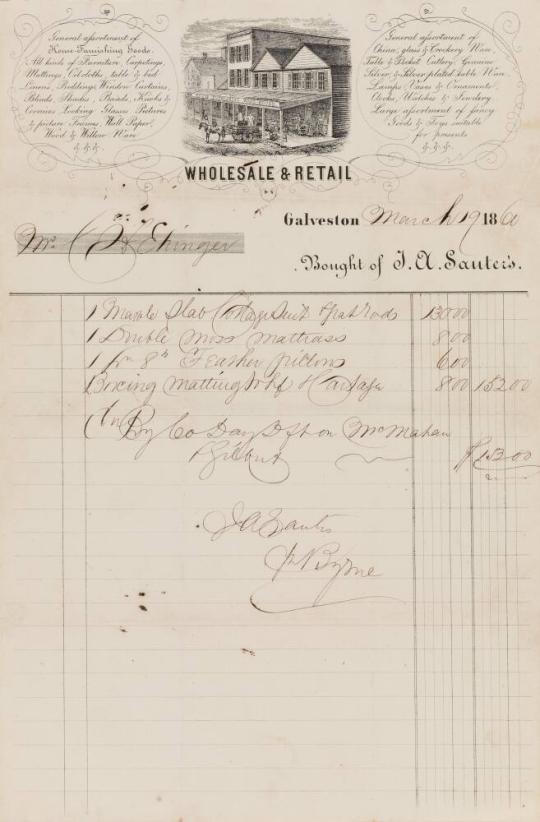 General assortment of
Home Furnishing Goods.
All kinds of Furniture, Carpetings,
Mattings, Oil cloths, table & bed
Linens, Beddings, Window Curtains,
Blinds, Shades, Bands, Hooks &
Cornices, Looking Glasses Pictures
& picture Frames, Wall Paper,
Wood & Willow Ware
&. &. &.
General assortment of
China, glass & Crockery Ware,
Table & Pocket Cutlery, Genuine
Silver, & Silver plated table Ware,
Lamps, Vases & Ornaments,
Clocks, Watches & Jewelry
Large assortment of fancy
Goods & Toys suitable
for presents
&. &. &.
WHOLESALE & RETAIL
Galveston March 19 1860
Mr. Ehinger
Bought of J. A. Sauter's.
1 Marble Slab Cottage Suit 130 00
1 Double Moss Mattrass 8 00
1 pr 8 lb Feather pillows 6 00
Boxing matting Whf & Cartage 8 00 152 00
Cr By 60 Days Dft on McMahan
& Gilbert $152 00
J A Sauter
Byrne